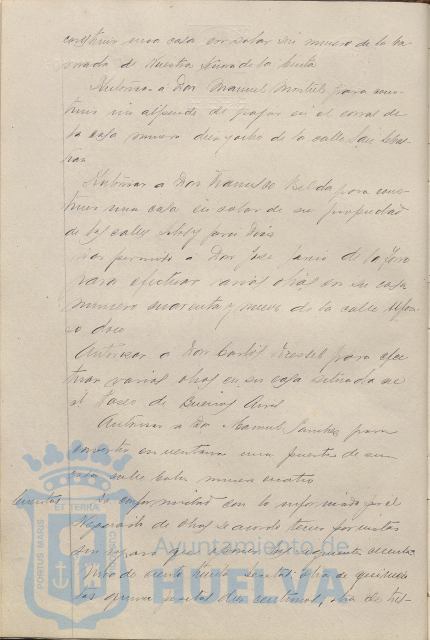 construir una casa en solar sin número de la ba-
rriada de Nuestra Señora de la Cinta
Autorizar a Don Manuel Montiel para cons-
truir un alpende de en el corral de
la casa número de la calle San Sebas-
tian
Autorizar a Don Francisco Belda para cons-
truir una casa en solar de su propiedad
de las calles y
permiso a Don José de la
para efectuar varias obras en su casa
número cuarenta y nueve de la calle Alfon-
so doce
Autorizar a Don Carlos para efec-
tuar varias obras en su casa situada en
el Paseo de Buenos Aires
Autorizar a Don Manuel Sanchez para
convertir en ventana una puerta de su
casa calle número cuatro
Cuentas
De conformidad con lo informado por el
Negociado de obras se acordó tener por vistas
sin reparo
de ciento treinta pesetas, otra de quinien-
tas pesetas dos centimos, otra de tres-
PORTUS MARIS
ET TERRÆ
CUSTODIA
Ayuntamiento de
HUELVA